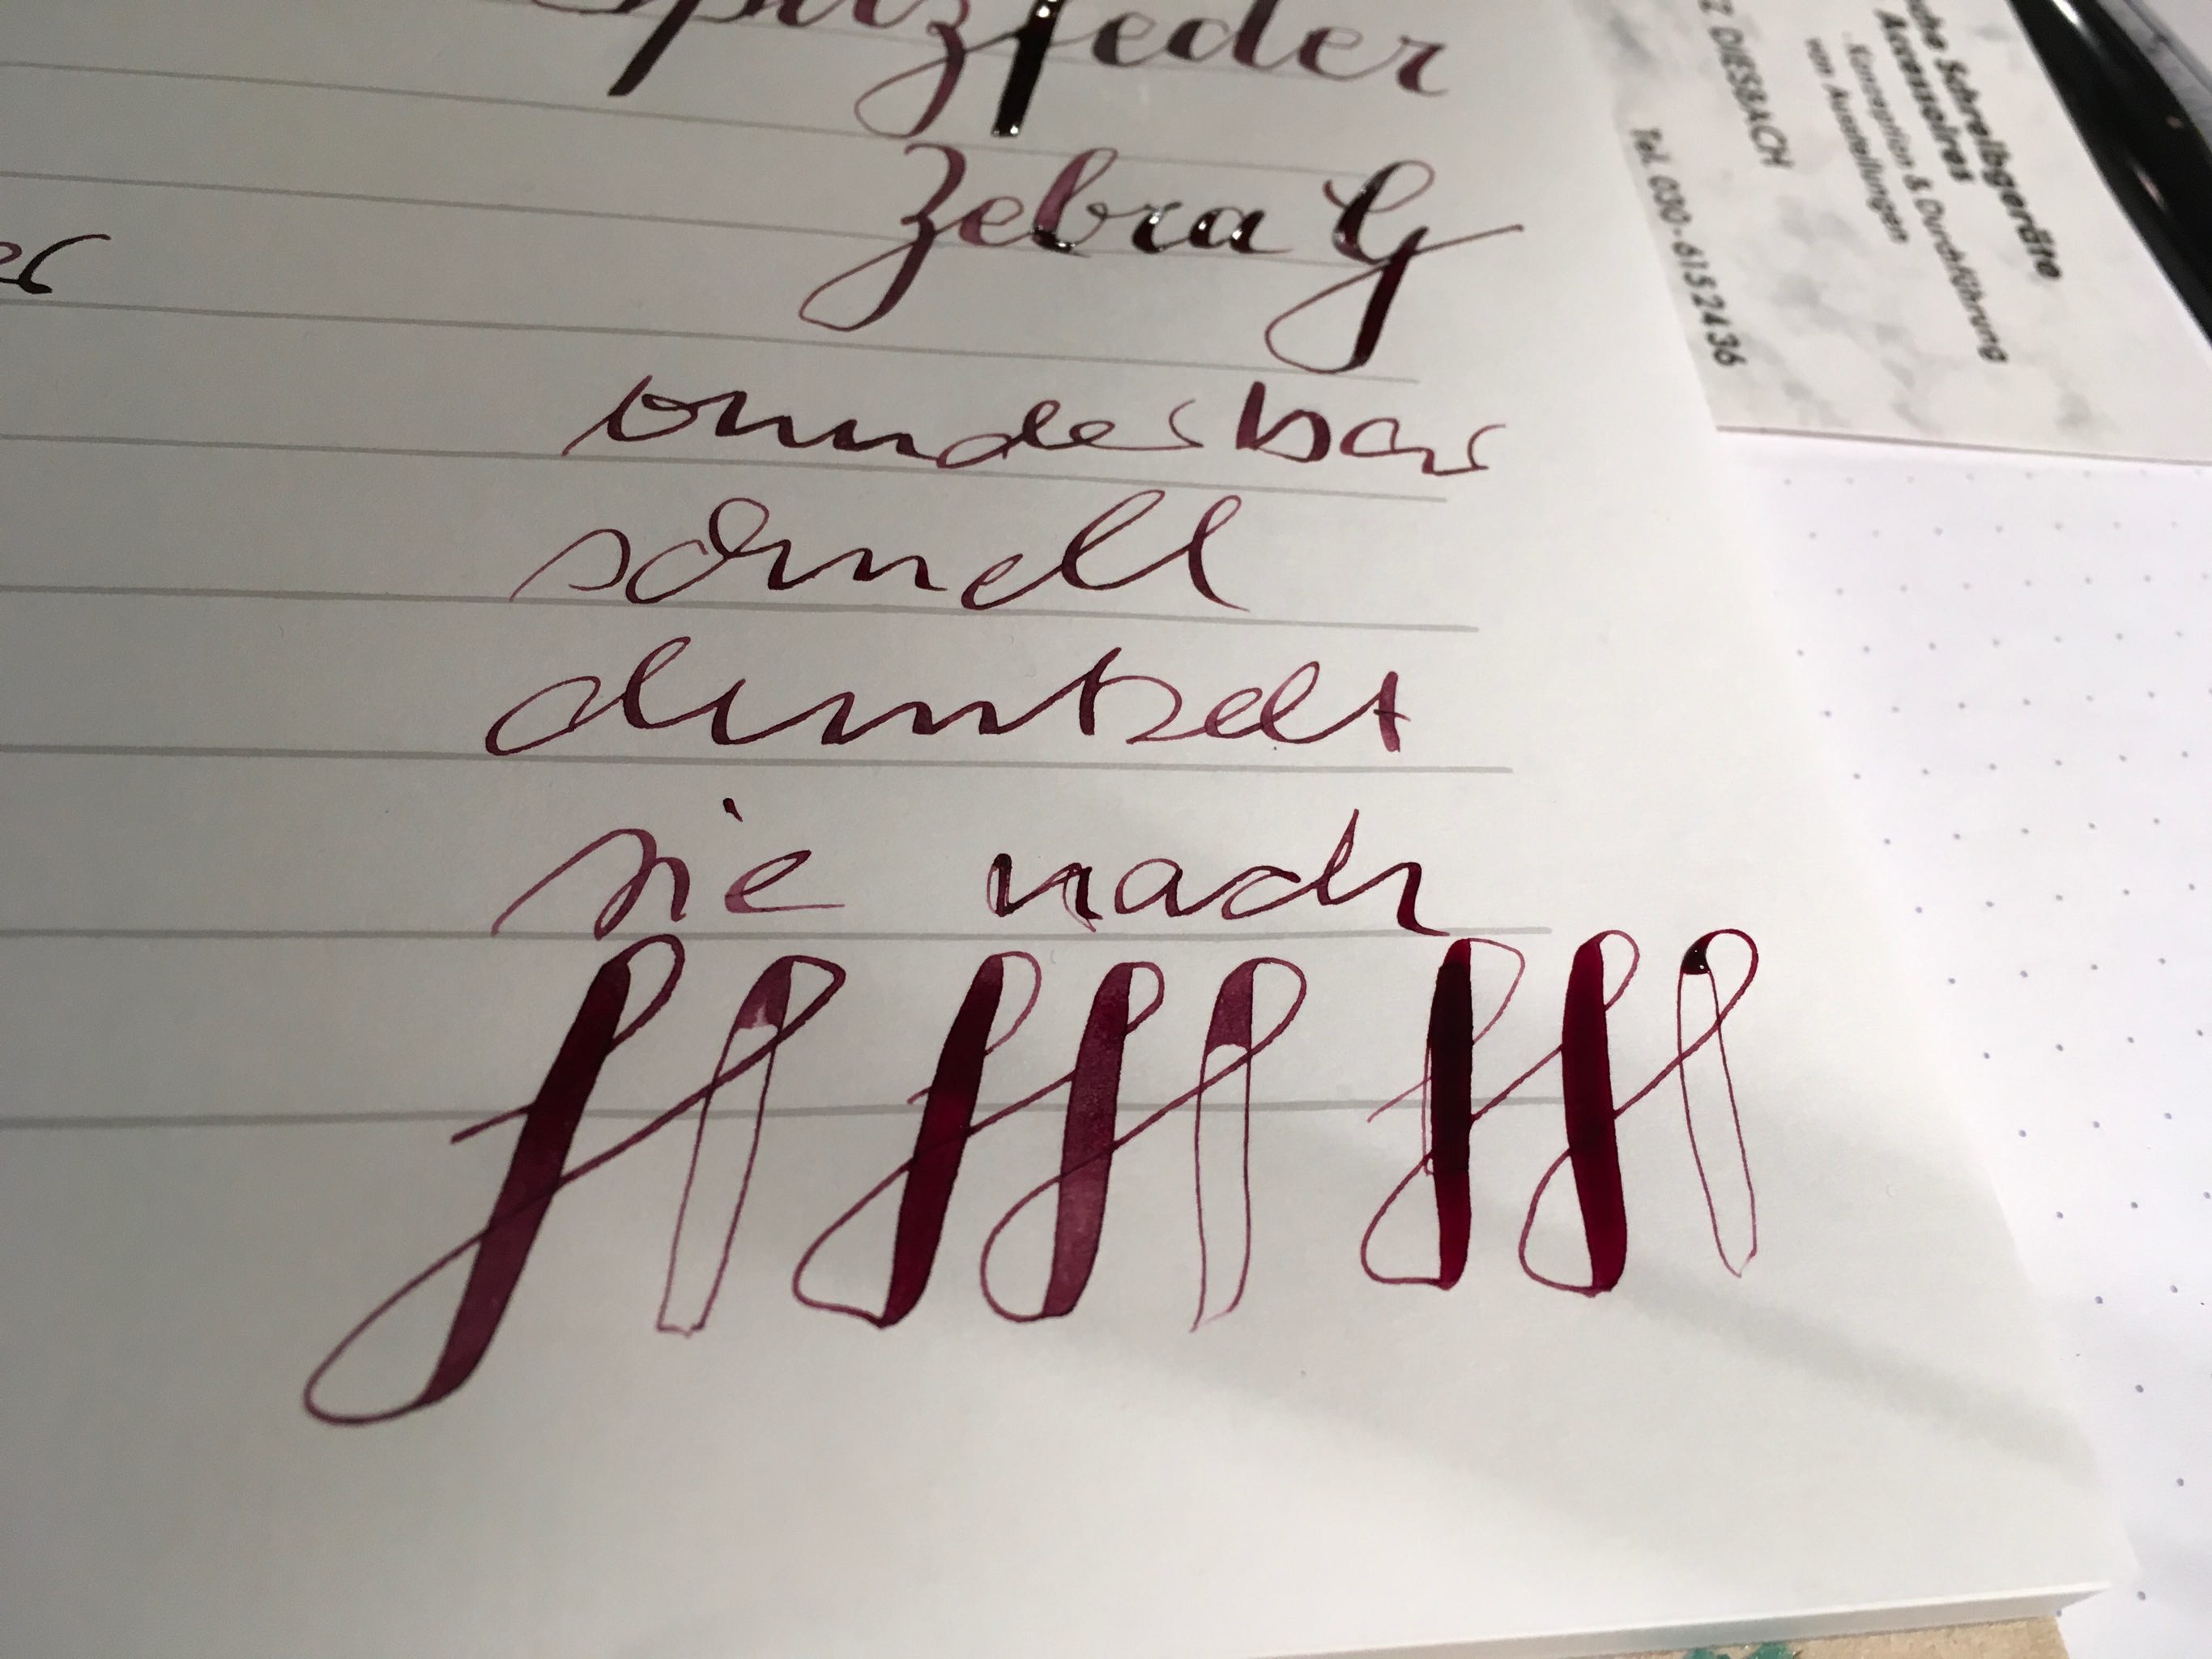 Spitzfeder
Zebra G
wunderbar
schnell
dunkelt
sie nach
Schreibgeräte
Accessoires
Konzeption & Durchführung
von Ausstellungen
Z DIESBACH
Tel. 030-6152436